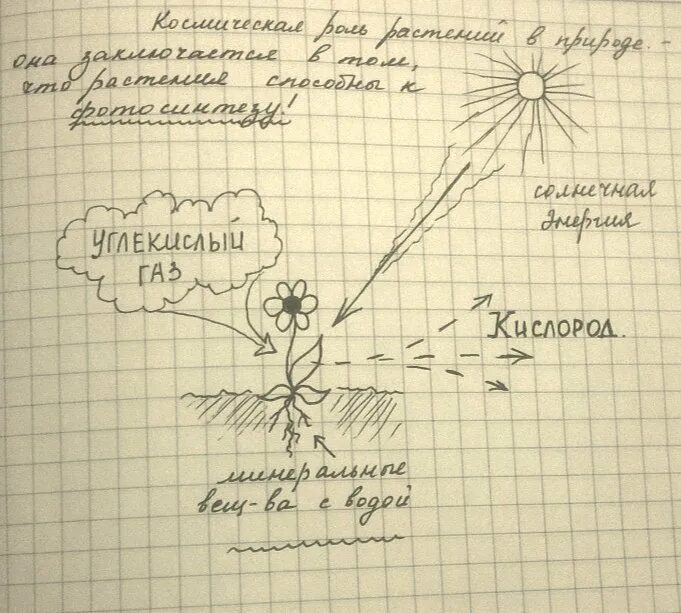 Космическая роль растений в природе. -
она заключается в том,
что растения способны к
фотосинтезу!
солнечная
энергия
УГЛЕКИСЛЫЙ
ГАЗ
Кислород.
минеральные
вещ-ва с водой